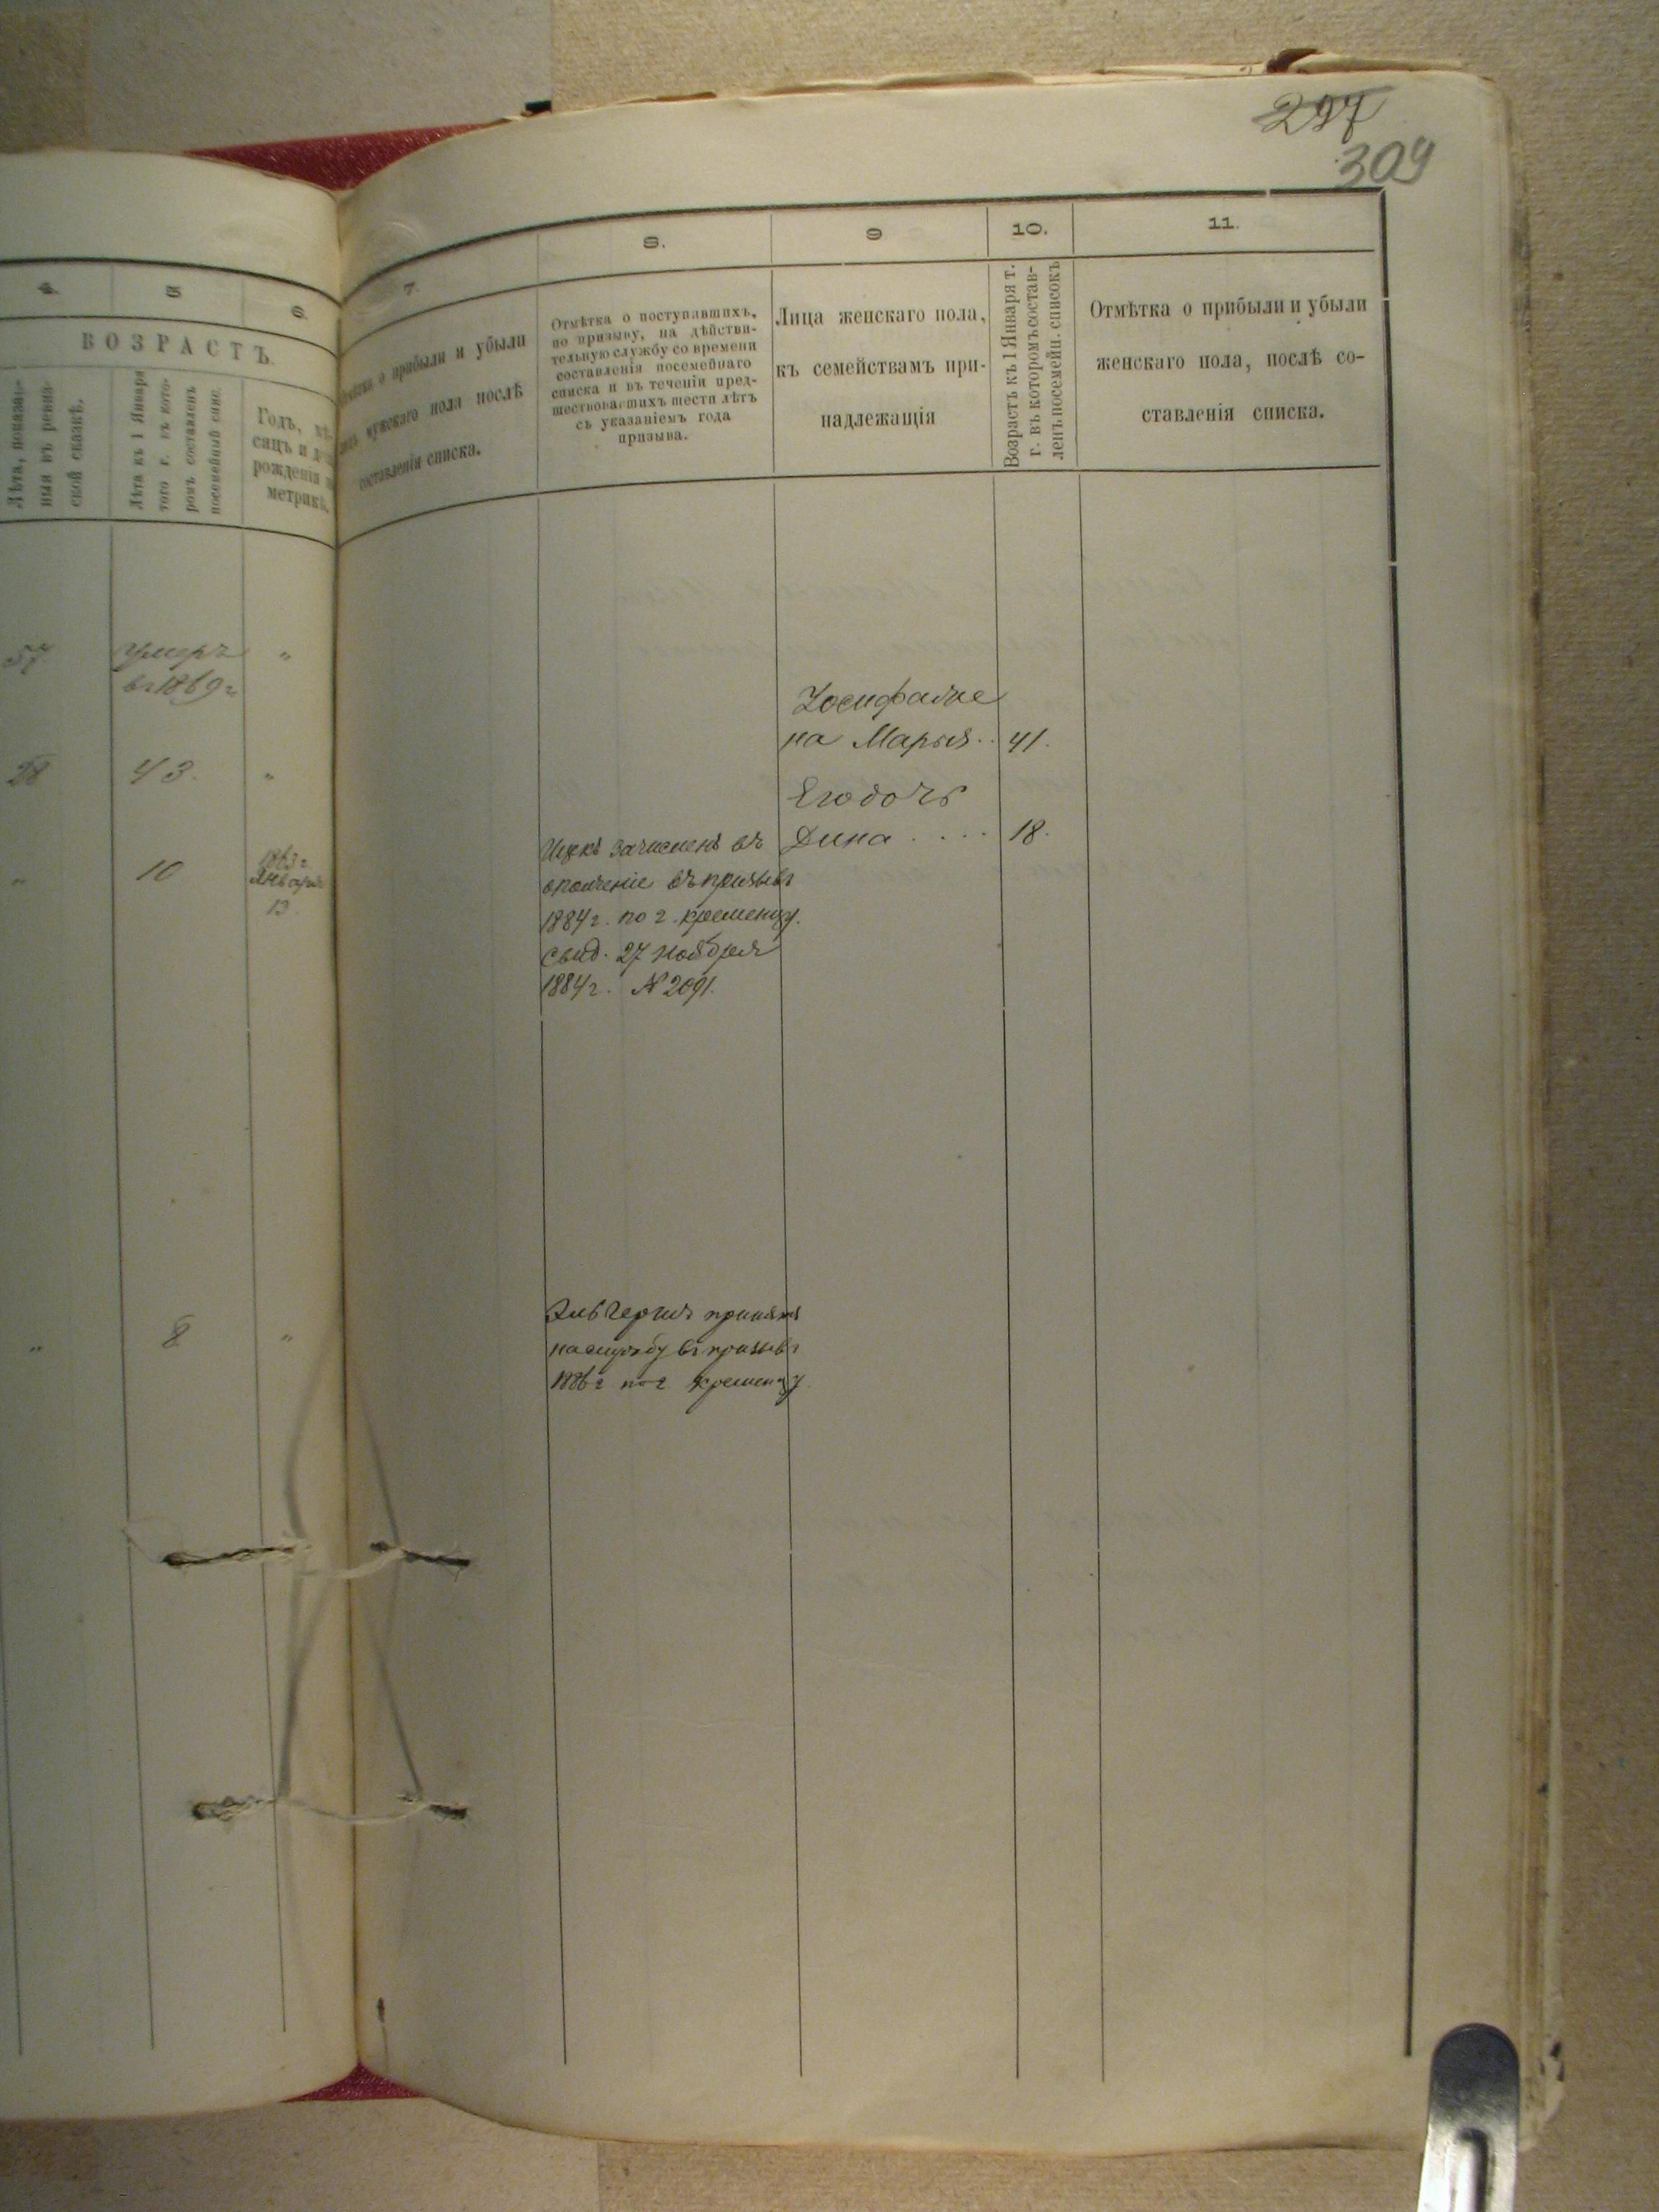 297
309
4.
5
6.
ВОЗРАСТЪ.
Лѣта, показан-
ныя въ ревиз-
ской сказкѣ.
Лѣта къ 1 Января
того г. въ кото-
ромъ составленъ
посемейный спис.
Годъ, мѣ-
сяцъ и д
рожденія
метрикѣ.
57
Умеръ
въ 1869 г.
"
28
43.
"
"
10
1863 г.
Января
13.
"
8
"
7.
о прибыли и убыли
мужскаго пола послѣ
составленія списка.
8.
Отмѣтка о поступавшихъ,
по призыву, на дѣйстви-
тельную службу со времени
составленія посемейнаго
списка и въ теченіи пред-
шествовавшихъ шести лѣтъ
съ указаніемъ года
призыва.
9
Лица женскаго пола,
къ семействамъ при-
надлежащія
10.
Возрастъ къ 1 Января т.
г. въ которомъ состав-
ленъ посемейн. списокъ
11.
Отмѣтка о прибыли и убыли
женскаго пола, послѣ со-
ставленія списка.
на Марья . . 41.
Его дочь
Дина . . . . 18.
зачисленъ въ
ополченіе въ призывъ
1884 г. по г. Кременцу.
Свид. 27 Ноября
1884 г. № 2091.
принятъ
на службу въ призывъ
1886 г по г Кременцу.